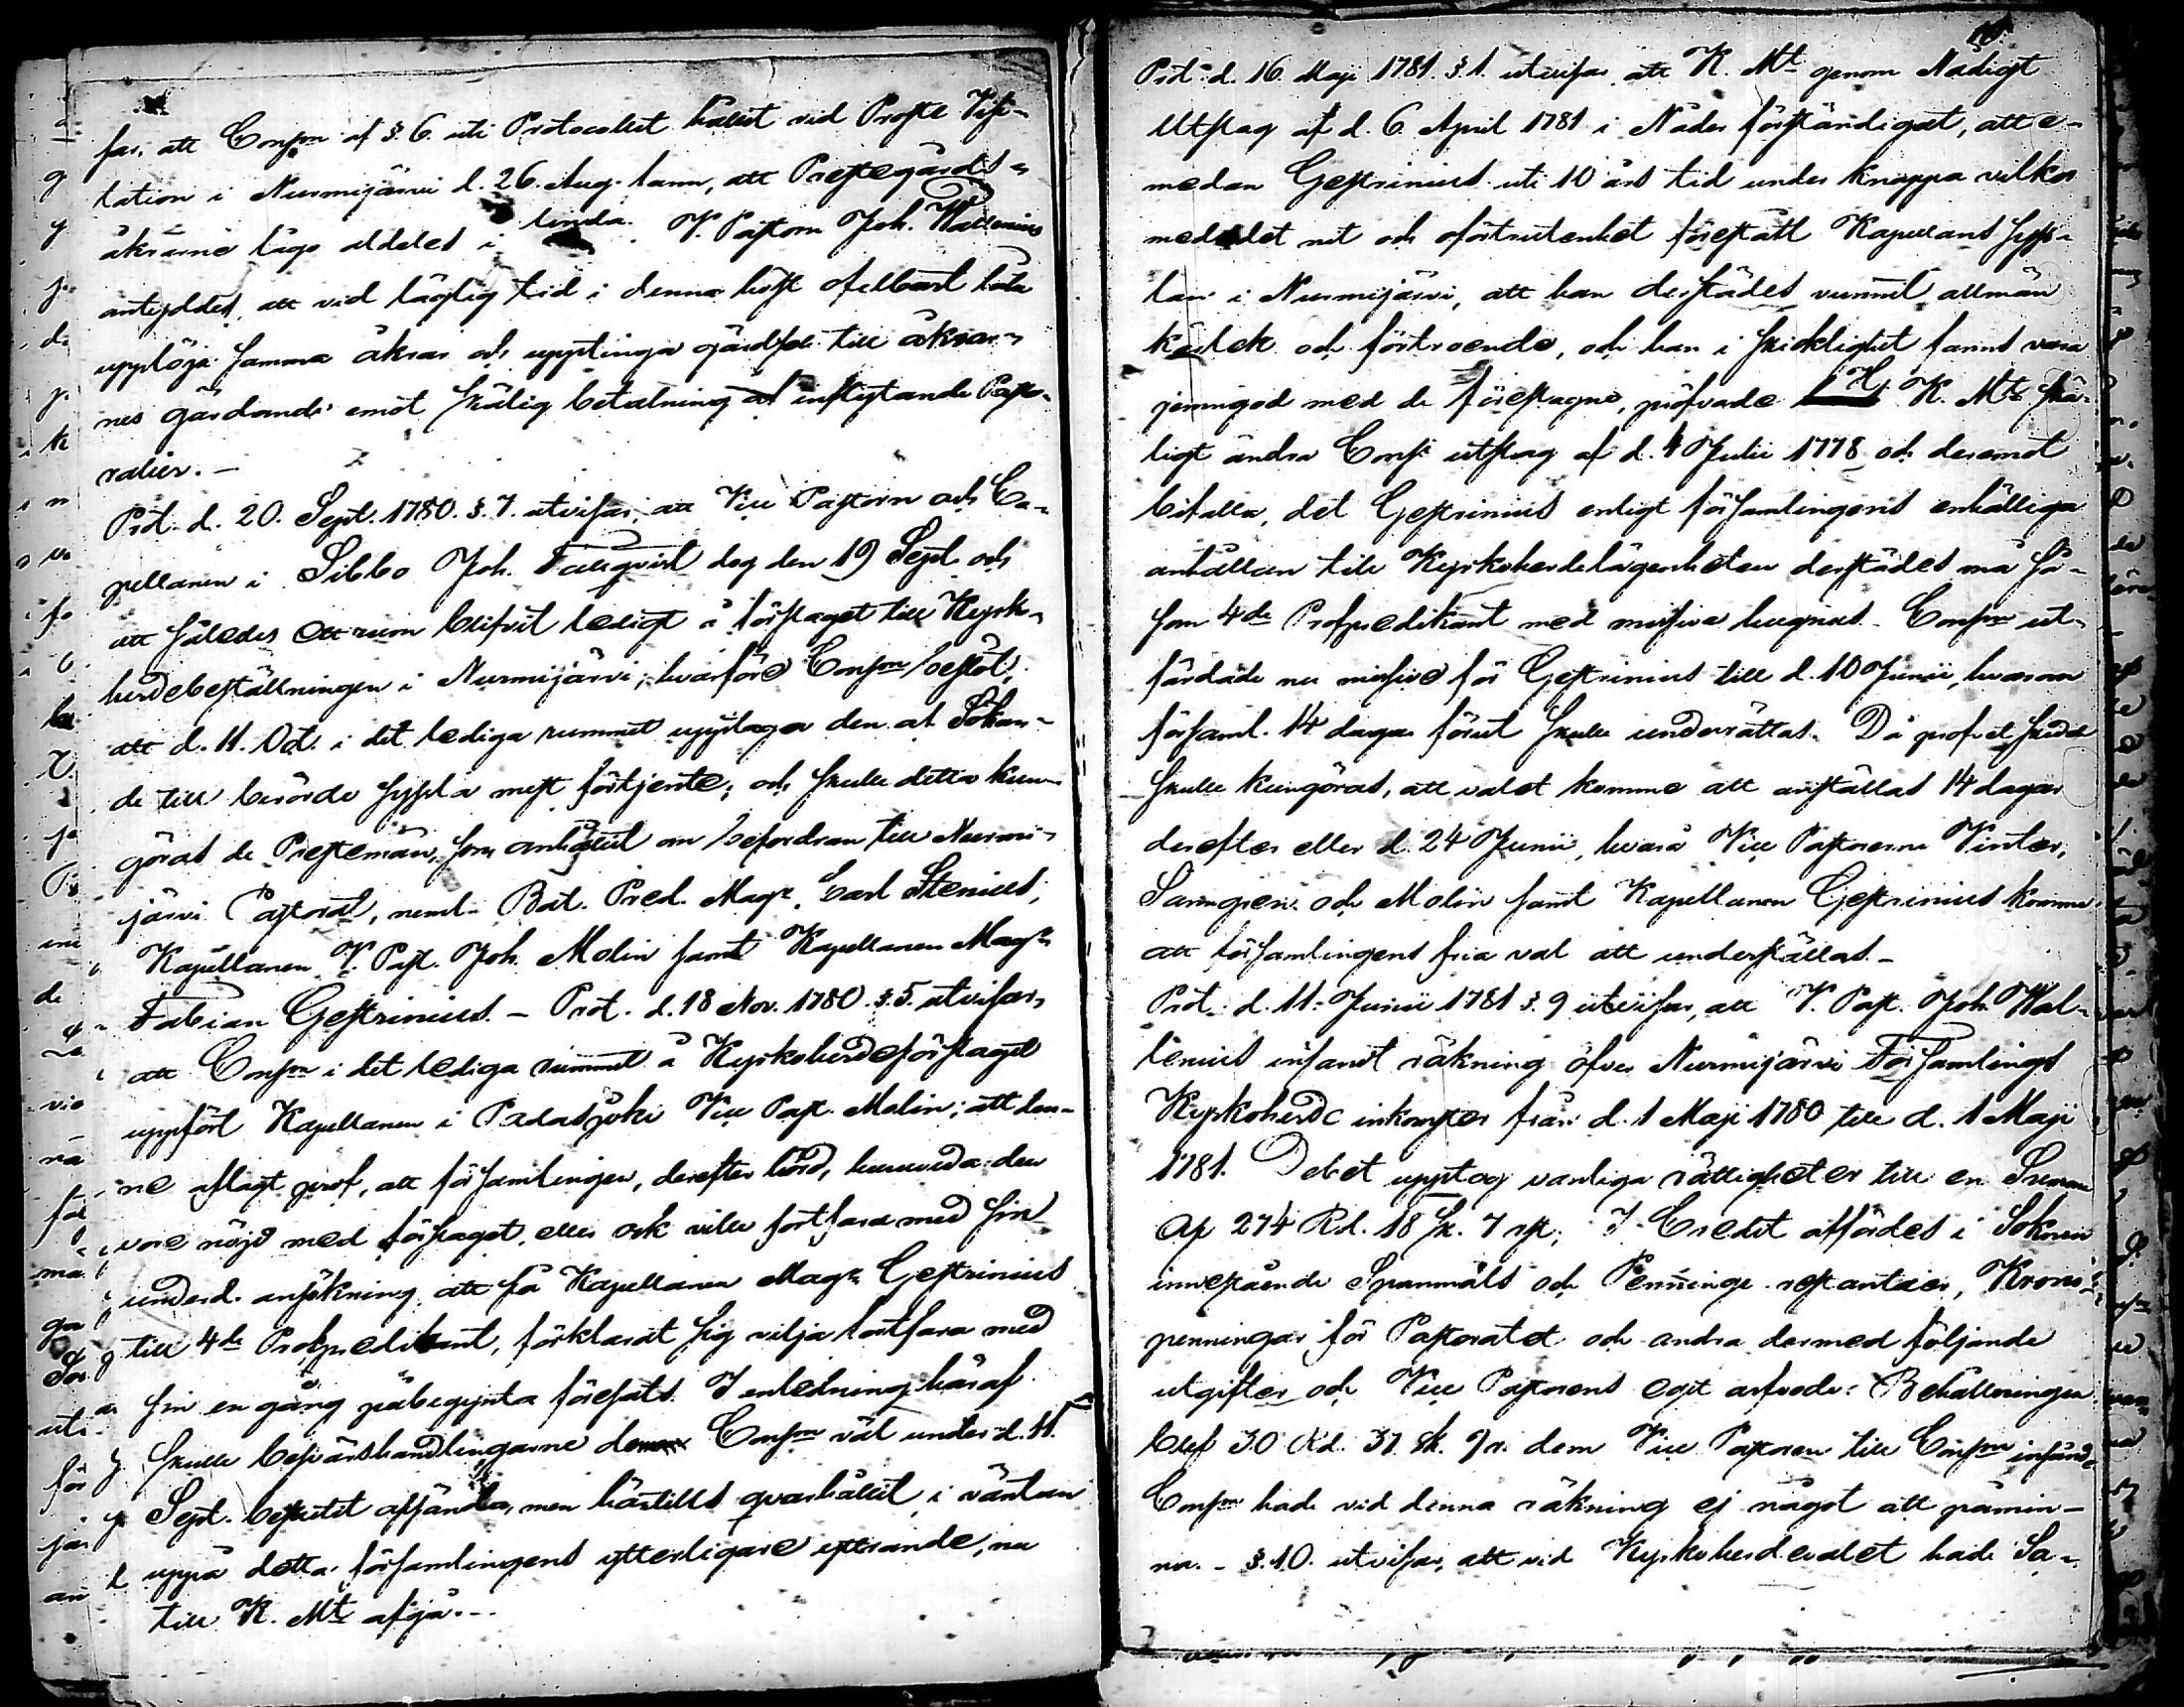 sar, att Consm af §. 6. uti Protocollet hållit vid Proste Visi-
tation i Nurmijärvi d. 26. Aug. fann, att Prestegårds-
åkrarne lågo aldeles i linda. V. Pastorn Joh. Wallenius
antyddes, att vid läglig tid i denna höst ofelbart låta
upplöja samma åkrar och upptinga gärdsel till åkrar-
nes gärdande emot skälig betalning af inflytande Pasto-
ralier. -
Prot. d. 20. Sept. 1780. §. 7. utvisar, att Vice Pastorn och Ca-
pellanen i Sibbo Joh. Fallqvist dog den 19 Sept. och
att således ett rum blifvit ledigt å förslaget till Kyrko-
herdebeställningen i Nurmijärvi; hvarföre Consm beslöt,
att d. 11. Oct. i det lediga rummet upptaga den af Sökan-
de till berörde syssla mest förtjente; och skulle detta kun-
göras de Prestemän, som anhållit om befordran till Nurmi-
järvi Pastorat, neml. Bat. Pred. Magr. Carl Stenius,
Kapellanen V. Past. Joh. Molin samt Kapellanen Magr.
Fabian Gestrinius. - Prot. d. 18 Nov. 1780. §. 5. utvisar,
att Consm i det lediga rummet å Kyrkoherdeförslaget
uppfört Kapellanen i Padasjoki Vice Past. Molin; att den-
ne aflagt prof, att församlingen, derefter hörd, huruvida den
vore nöjd med förslaget, eller ock ville fortfara med sin
underd. ansökning att få Kapellanen Magr. Gestrinius
till 4de Profpredikant, förklarat sig vilja fortfara med
sin en gång påbegynta föresats. I anledning häraf
skulle besvärshandlingarne Consm väl under d. 11.
Sept. beslutit afsända, men härtills qvarhållit i väntan
uppå detta församlingens ytterligare yttrande, nu
till K. Mt. afgå. -
Prot. d. 16. Maji 1781. §. 1. utvisar, att K. Mt genom Nådigt
Utslag af d. 6. April 1781 i Nåder förständigat, att e-
medan Gestrinius uti 10 års tid under knappa vilkor
med nit och oförtrutenhet förestått Kapellans syss-
lan i Nurmijärvi, att han derstädes vunnit allmän
kärlek och förtroende, och han i skicklighet fanns vara
jemngod med de föreslagne, pröfvade H. K. Mt. skä-
ligt ändra Cons: utslag af d. 4 Julii 1778 och deremot
bifalla, det Gestrinius enligt församlingens enhälliga
anhållan till Kyrkoherdelägenheten derstädes må så-
som 4de Profpredikant med missive hugnas. - Consm ut-
färdade nu missive för Gestrinius till d. 10 Junii, hvarom
församl. 14 dagar förut skulle underrättas. Då prof
skulle kungöras, att valet komme att anställas 14 dagar
derefter eller d. 24 Junii, hvarå Vice Pastorerne Vinter,
och Molin samt Kapellanen Gestrinius komme
att församlingens fria val att underställas. -
Prot. d. 11. Junii 1781 §. 9 utvisar, att V. Past. Joh. Wal-
lenius insandt räkning öfver Nurmijärvi Församlings
Kyrkoherde inkomster från d. 1 Maji 1780 till d. 1 Maji
1781. Debet upptog vanliga rättigheter till en Summa
Af 274 Rd. 18 sk. 7 rst; I Credit affördes i Soknen
innestående Spanmåls och Penninge restantier, Krono-
penningar för Pastoratet och andra dermed följande
utgifter och Vice Pastorens eget arfvode. Behållningen
blef 30 Rd. 31. sk. 9 r. dem Vice Pastoren till Consm insänd.
Consm hade vid denna räkning ej något att påmin-
na. - §. 10. utvisar, att vid Kyrkoherdevalet hade Sa-